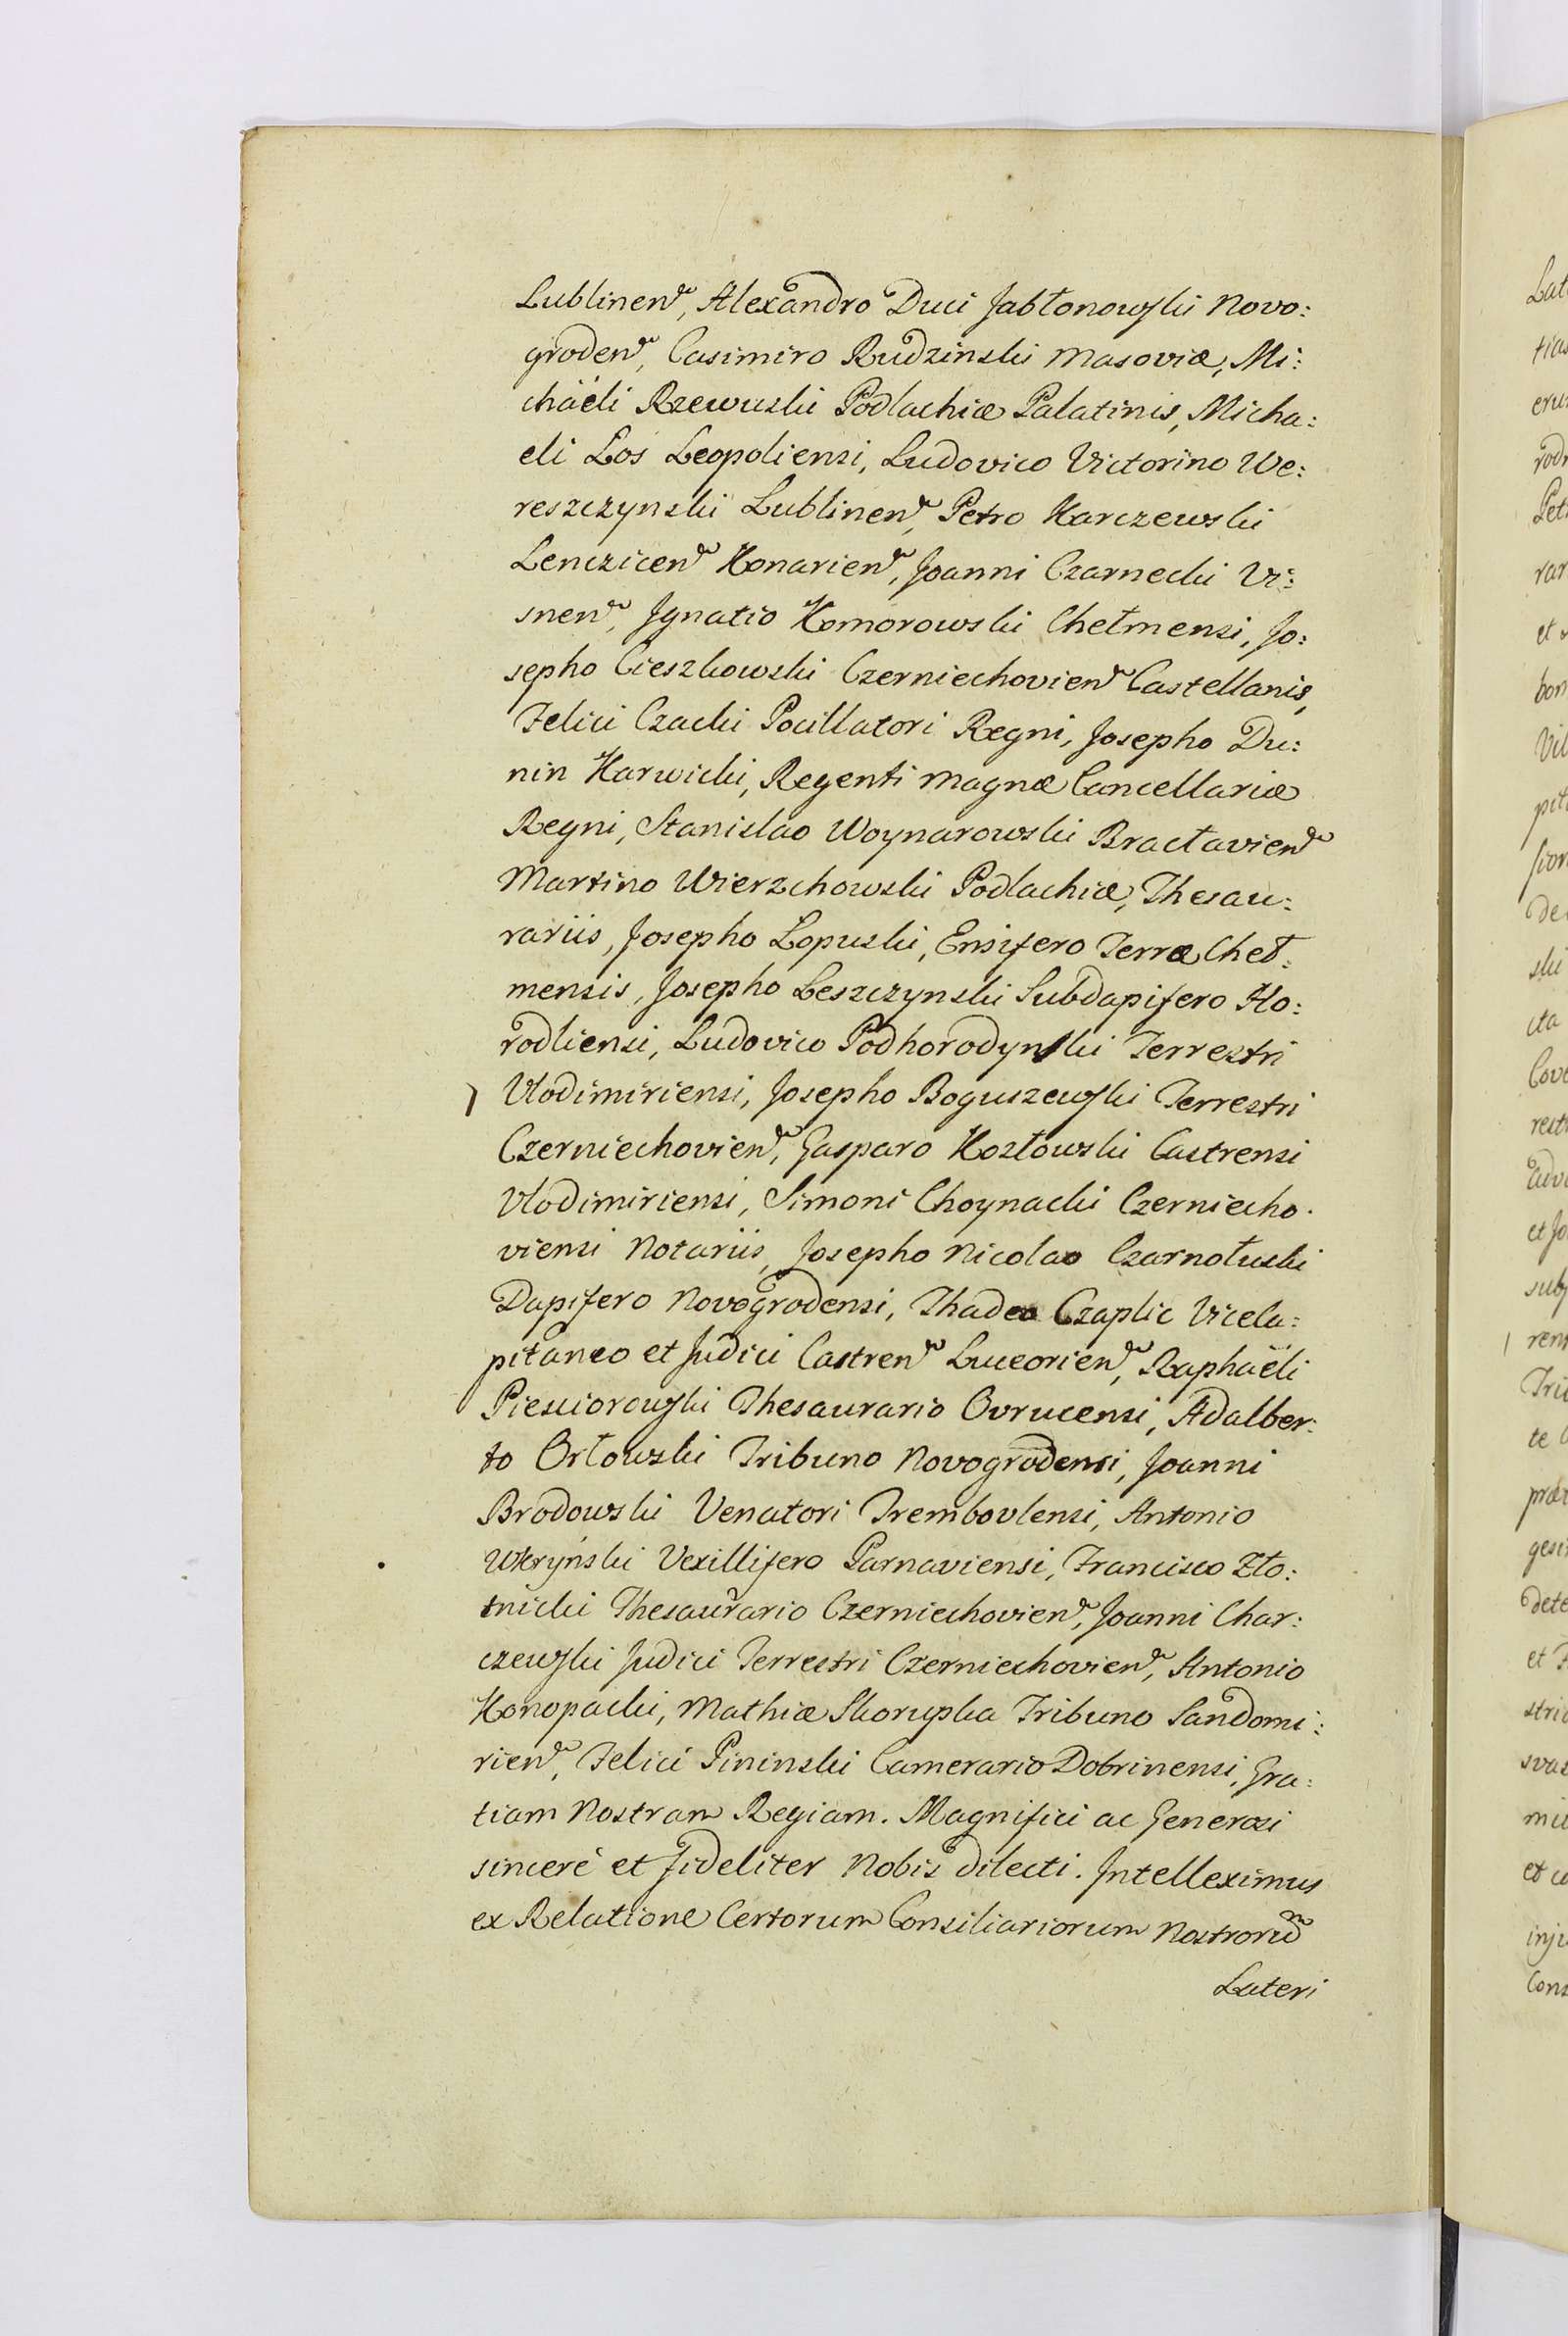 Lublinen, Alexandro Duci Jabłonowski Novo:
groden, Casimiro Rudzinski Masoviæ, Mi:
chäeli Rzewuski Podlachiæ Palatinis, Micha:
eli Łos Leopoliensi, Ludovico Victorino We:
reszczynski Lublinen, Petro Karczewski
Lenczicen Konarien, Joanni Czarnecki Vi:
snen, Ignatio Komorowski Chełmensi, Jo:
sepho Cieszkowski Czerniechovien Castellanis,
Felici Czacki Pocillatori Regni, Josepho Du:
nin Karwicki, Regenti Magnæ Cancellariæ
Regni, Stanislao Woynarowski Bracłavien
Martino Wierzchowski Podlachiæ, Thesau:
rariis, Josepho Łopuski, Ensifero Terræ Cheł:
mensis, Josepho Leszczynski Subdapifero Ho:
rodliensi, Ludovico Podhorodynski Terrestri
Vlodimiriensi, Josepho Boguszewski Terrestri
Czerniechovien, Gasparo Kozłowski Castrensi
Vlodimiriensi, Simoni Choynacki Czerniecho.
viensi Notariis, Josepho Nicolao Czarnołuski
Dapifero Novogrodensi, Thadeo Czaplic Viceca:
pitaneo et Judici Castren Luceorien, Raphaëli
Piesciorowski Thesaurario Ovrucensi, Adalber:
to Orłowski Tribuno Novogrodensi, Joanni
Brodowski Venatori Trembovlensi, Antonio
Wkryński Vexillifero Parnaviensi, Francisco Zło:
tnicki Thesaurario Czerniechovien, Joanni Char:
czewski Judici Terrestri Czerniechovien, Antonio
Konopacki, Mathiæ Skorupka Tribuno Sandomi:
rien, Felici Pininski Camerario Dobrinensi, Gra:
tiam Nostram Regiam. Magnifici ac Generosi
sincerè et fideliter Nobis dilecti. Intelleximus
ex Relatione Certorum Consiliariorum Nostrorum
Lateri